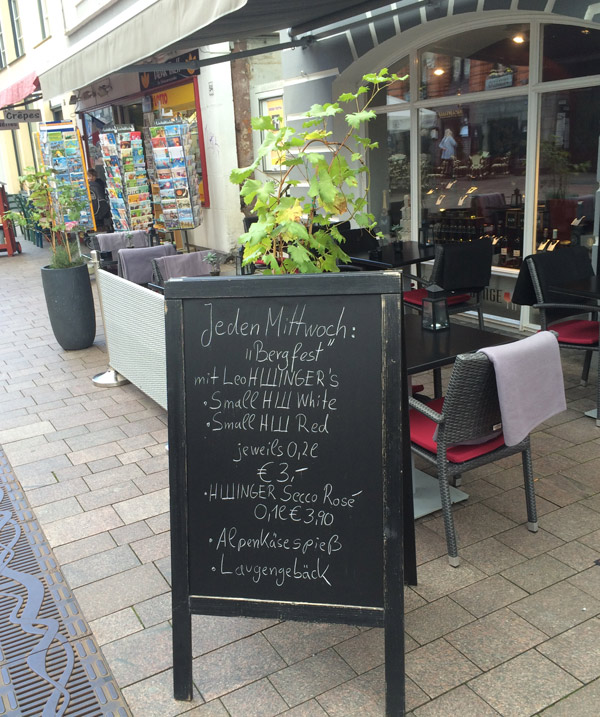 Crêpes
Jeden Mittwoch:
"Bergfest"
mit Leo HШINGER's
• Small HШ White
• Small HШ Red
jeweils 0,2l
€ 3,-
• HШINGER Secco Rosé
0,1l € 3,90
• Alpenkäsespieß
• Laugengebäck